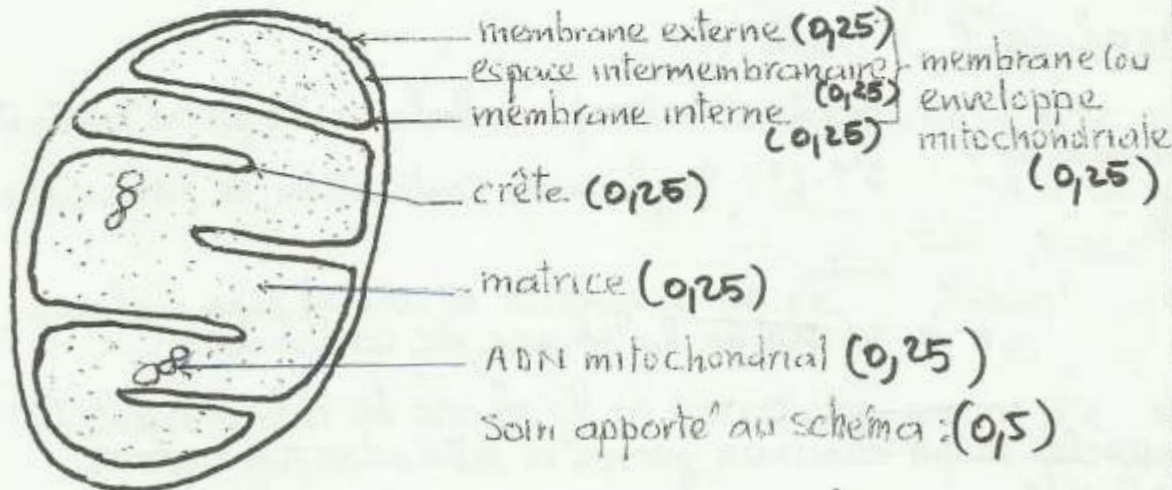 membrane externe (0,25)
espace intermembranaire
(0,25)
membrane interne
(0,25)
membrane (ou
enveloppe
mitochondriale
(0,25)
crête (0,25)
matrice (0,25)
ADN mitochondrial (0,25)
Soin apporté au schéma : (0,5)